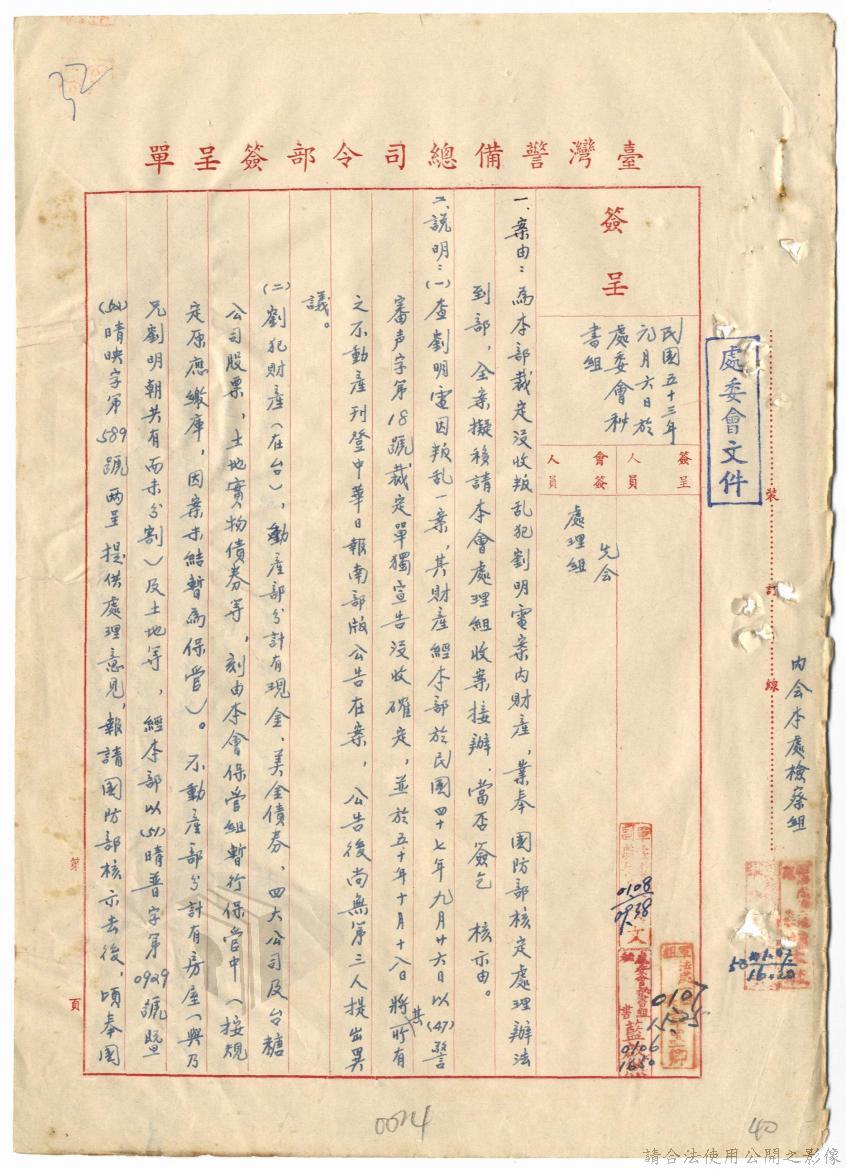 臺灣警備總司令部簽呈單
簽呈
民國五十三年
元月六日於
處委會秘
書組
簽呈人員
會簽人員
先会
處理組
處委會文件
裝訂線
内会本處檢察組
一、案由：為本部裁定没收叛乱犯劉明電案内財産，業奉 國防部核定處理辦法
到部，全案擬移請本會處理組收案接辦，當否簽乞 核示由。
二、説明：(一)查劉明電因叛乱一案，其財産經本部於民國四十七年九月廿六日以(47)警
審声字第18號裁定單獨宣告没收確定，並於五十年十月十八日將其所有
之不動産刊登中華日報南部版公告在案，公告後尚無第三人提出異
議。
(二)劉犯財産(在台)，動産部分計有現金，美金債券，四大公司及台糖
公司股票，土地實物債券等，刻由本會保管組暫行保管中(按規
定原應繳庫，因案未結暫為保管)。不動産部分計有房屋(與乃
兄劉明朝共有而未分割)及土地等，經本部以(51)晴普字第0929號暨
(52)晴映字第589號两呈提供處理意見，報請國防部核示去後，頃奉國
第 頁
0108
0938
0107
1525
0106
1650
53.01.07
16.20
0014
40
請合法使用公開之影像